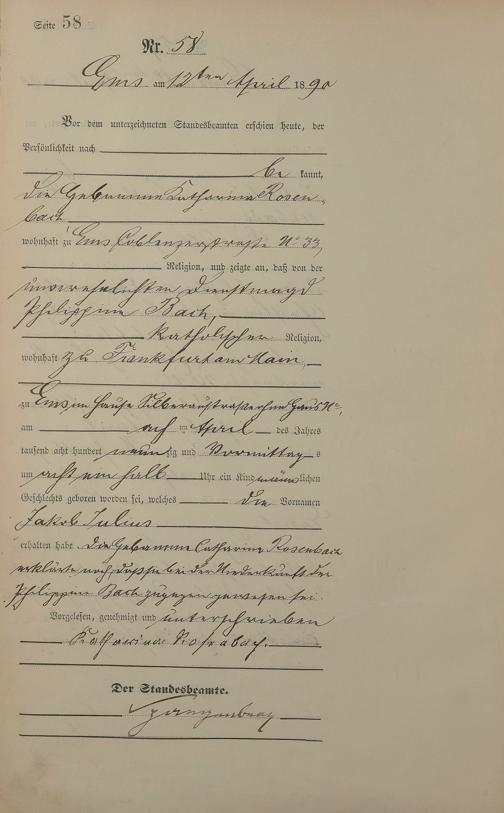 Seite 58
Nr. 58
Ems am 12ten April 1890
Vor dem unterzeichneten Standesbeamten erschien heute, der
Persönlichkeit nach
be kannt,
die Hebamme Katharina Rosen-
bach
wohnhaft zu Ems Coblenzerstraße No 33,
Religion, und zeigte an, daß von der
unverehelichten Dienstmagd
Philippine Bach,
katholischer Religion,
wohnhaft zu Frankfurt am Main,
zu Ems im Hause Silberaustraße ohne Haus No,
am acht im April des Jahres
tausend acht hundert neunzig und Vormittags
um acht ein halb Uhr ein Kind männlichen
Geschlechts geboren worden sei, welches die Vornamen
Jakob Julius
erhalten habe. Die Hebamme Catharina Rosenbach
erklärte noch, daß sie bei der Niederkunft der
Philippine Bach zugegen gewesen sei.
Vorgelesen, genehmigt und unterschrieben
Katharina Rosenbach.
Der Standesbeamte.